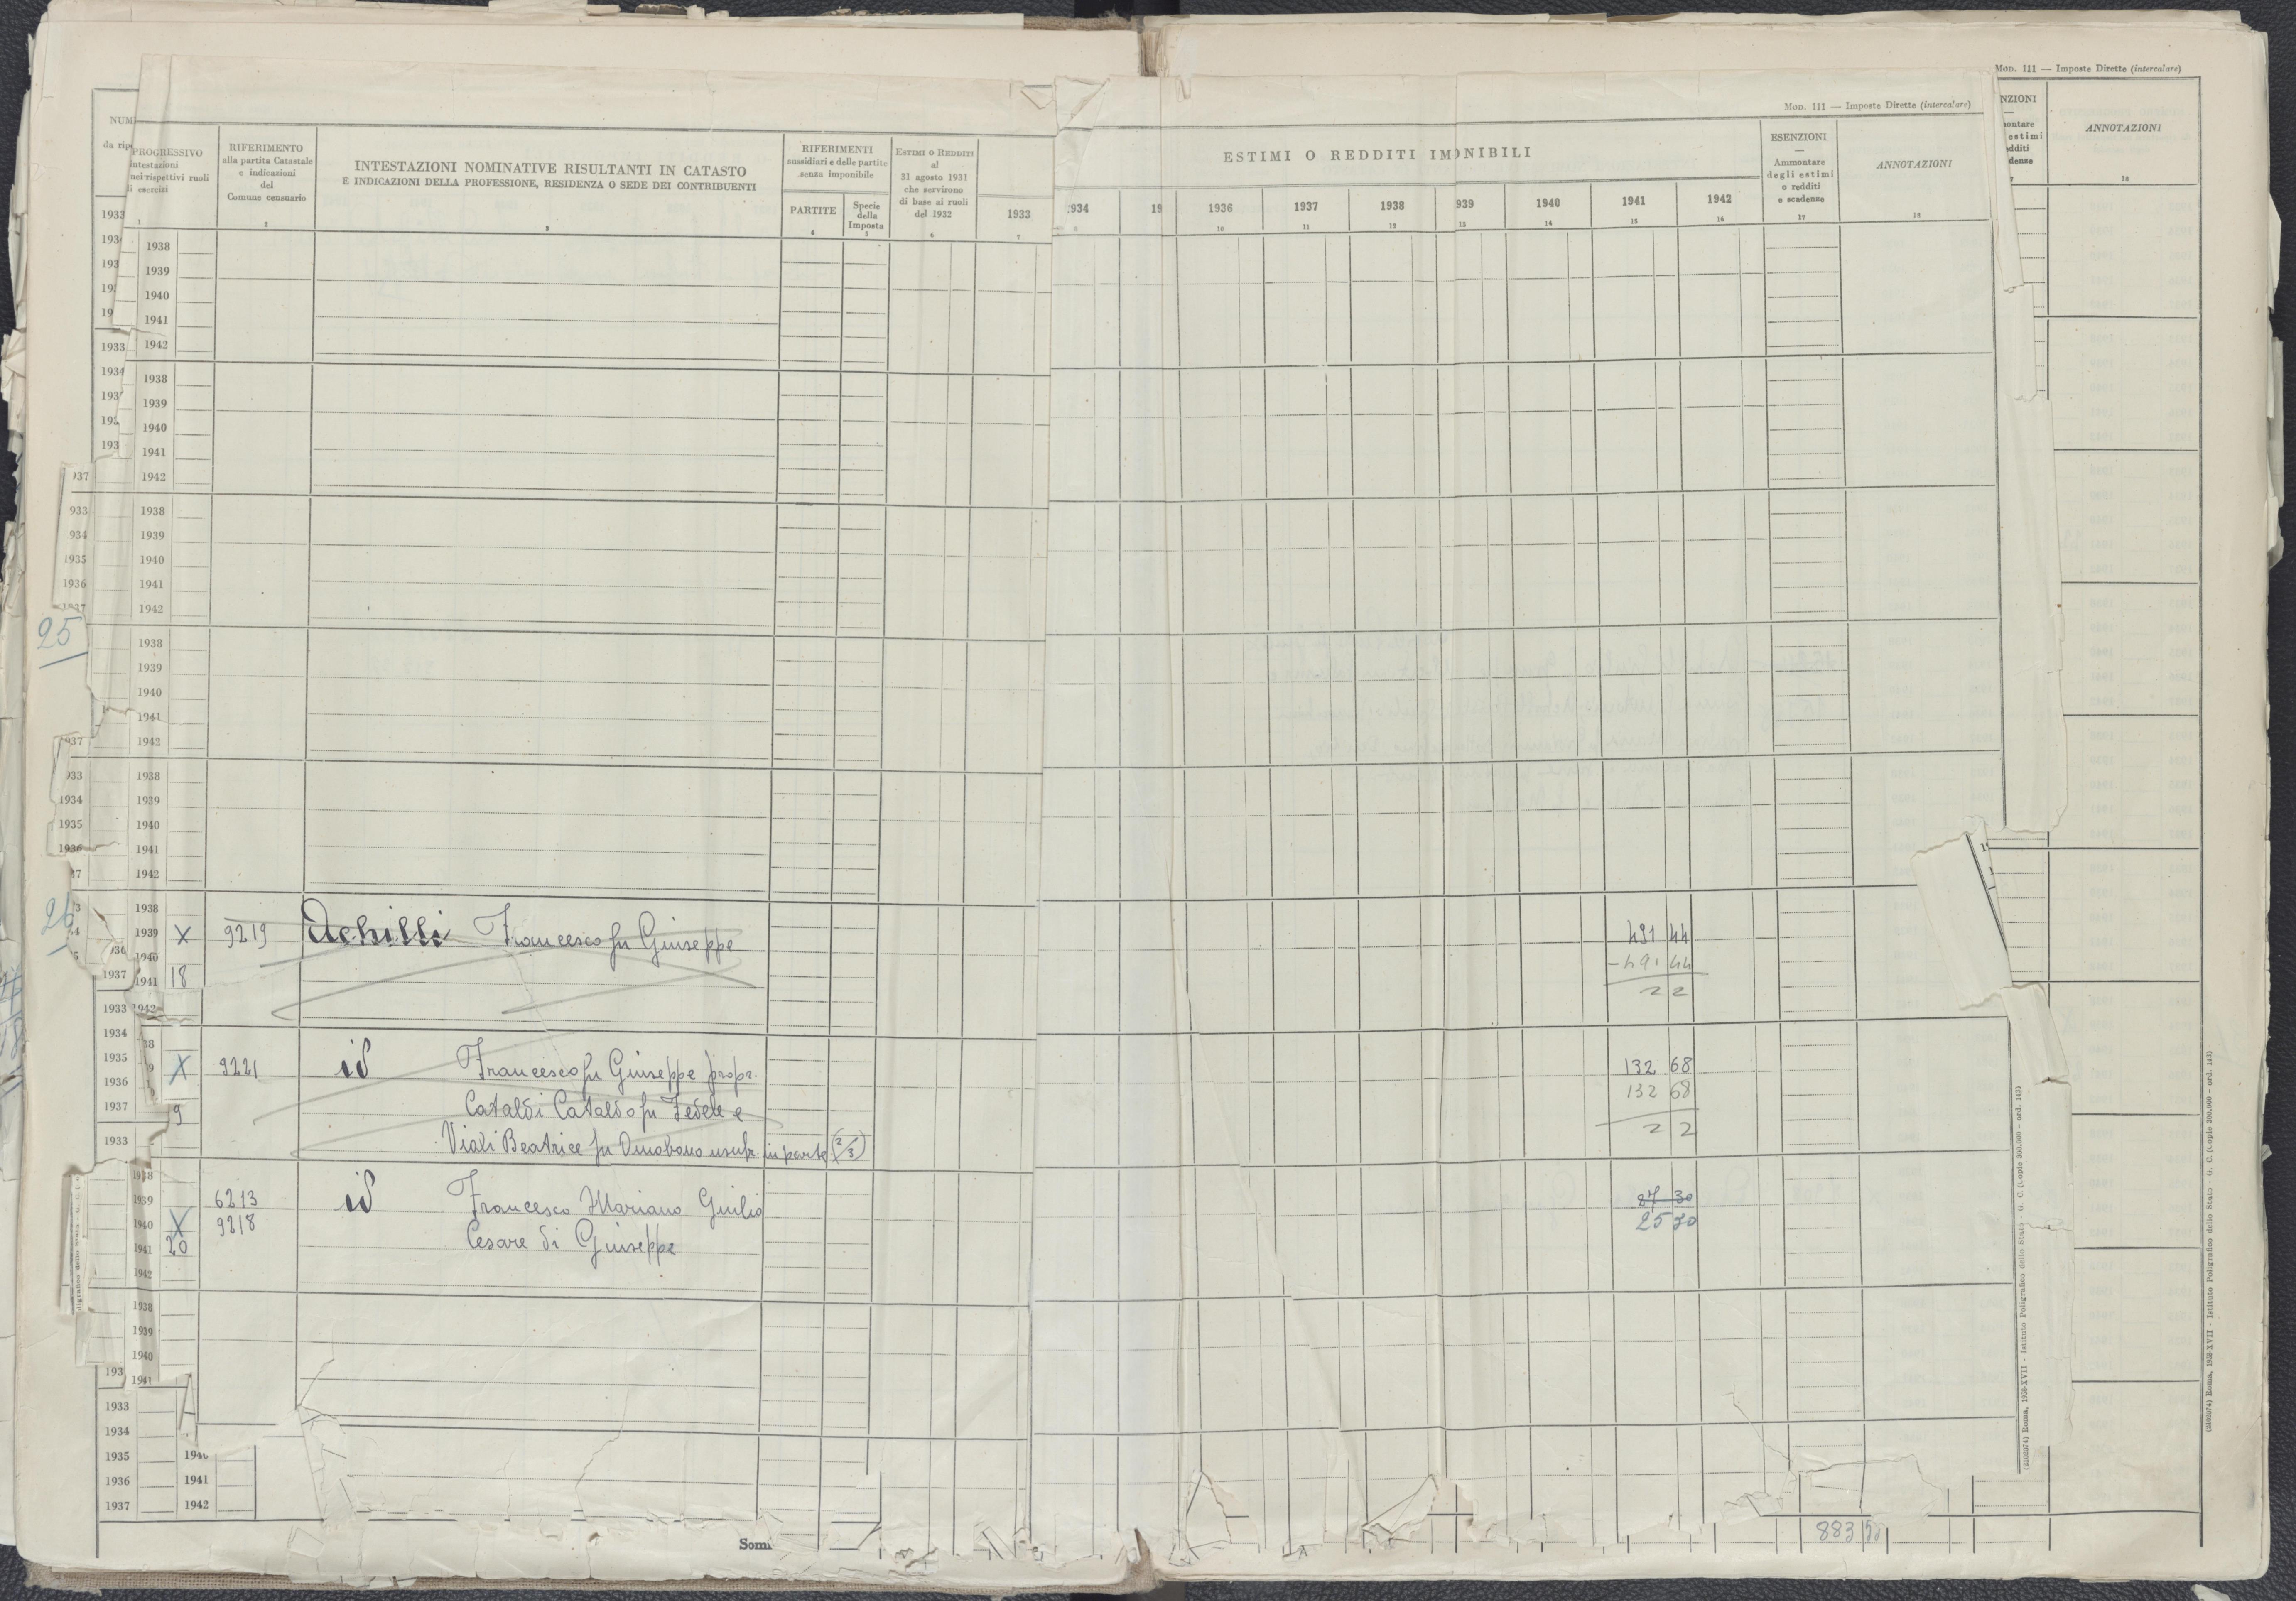 MOD. 111 — Imposte Dirette (intercalare)
MOD. 111 — Imposte Dirette (intercalare)
NUM
da rip
PROGRESSIVO
intestazioni
nei rispettivi ruoli
esercizi
1
RIFERIMENTO
alla partita Catastale
e indicazioni
del
Comune censuario
2
INTESTAZIONI NOMINATIVE RISULTANTI IN CATASTO
E INDICAZIONI DELLA PROFESSIONE, RESIDENZA O SEDE DEI CONTRIBUENTI
3
RIFERIMENTI
sussidiari e delle partite
senza imponibile
PARTITE
4
Specie
della
Imposta
5
ESTIMI O REDDITI
al
31 agosto 1931
che servirono
di base ai ruoli
del 1932
6
1933
7
ESTIMI O REDDITI IMONIBILI
934
19
1936
10
1937
11
1938
12
939
13
1940
14
1941
15
1942
16
ESENZIONI
—
Ammontare
degli estimi
o redditi
e scadenze
17
ANNOTAZIONI
18
NZIONI
—
montare
estimi
edditi
denze
7
ANNOTAZIONI
18
1933
1938
1939
1940
1941
1933 1942
1934 1938
1939
1940
1941
1942
937
933 1938
934 1939
1935 1940
1936 1941
1942
25
1938
1939
1940
1941
1942
937
933 1938
1934 1939
1935 1940
1936 1941
1942
26
1938
1939 X 9219 Achilli Francesco fu Giuseppe 491 44
1940 - 491 44
1937 1941 18 2 2
1933 1942
1934
1935 X 9221 id Francesco fu Giuseppe propr. 132 68
1936 132 68
1937 9 Cataldi Cataldo fu Fedele e
1933 Viali Beatrice fu Omobono usufr. in parte (2/3) 2 2
1938
1939 6213 id Francesco Mariano Giulio 87 30
1940 X 9218 25 70
1941 20 Cesare di Giuseppe
1942
1938
1939
1940
193 1941
1933
1934
1935 1940
1936 1941
1937 1942
Som
A
883
(2403074) Roma, 1938-XVII - Istituto Poligrafico dello Stato - G. C. (copie 300.000 - ord. 143)
(2403074) Roma, 1938-XVII - Istituto Poligrafico dello Stato - G. C. (copie 300.000 - ord. 143)